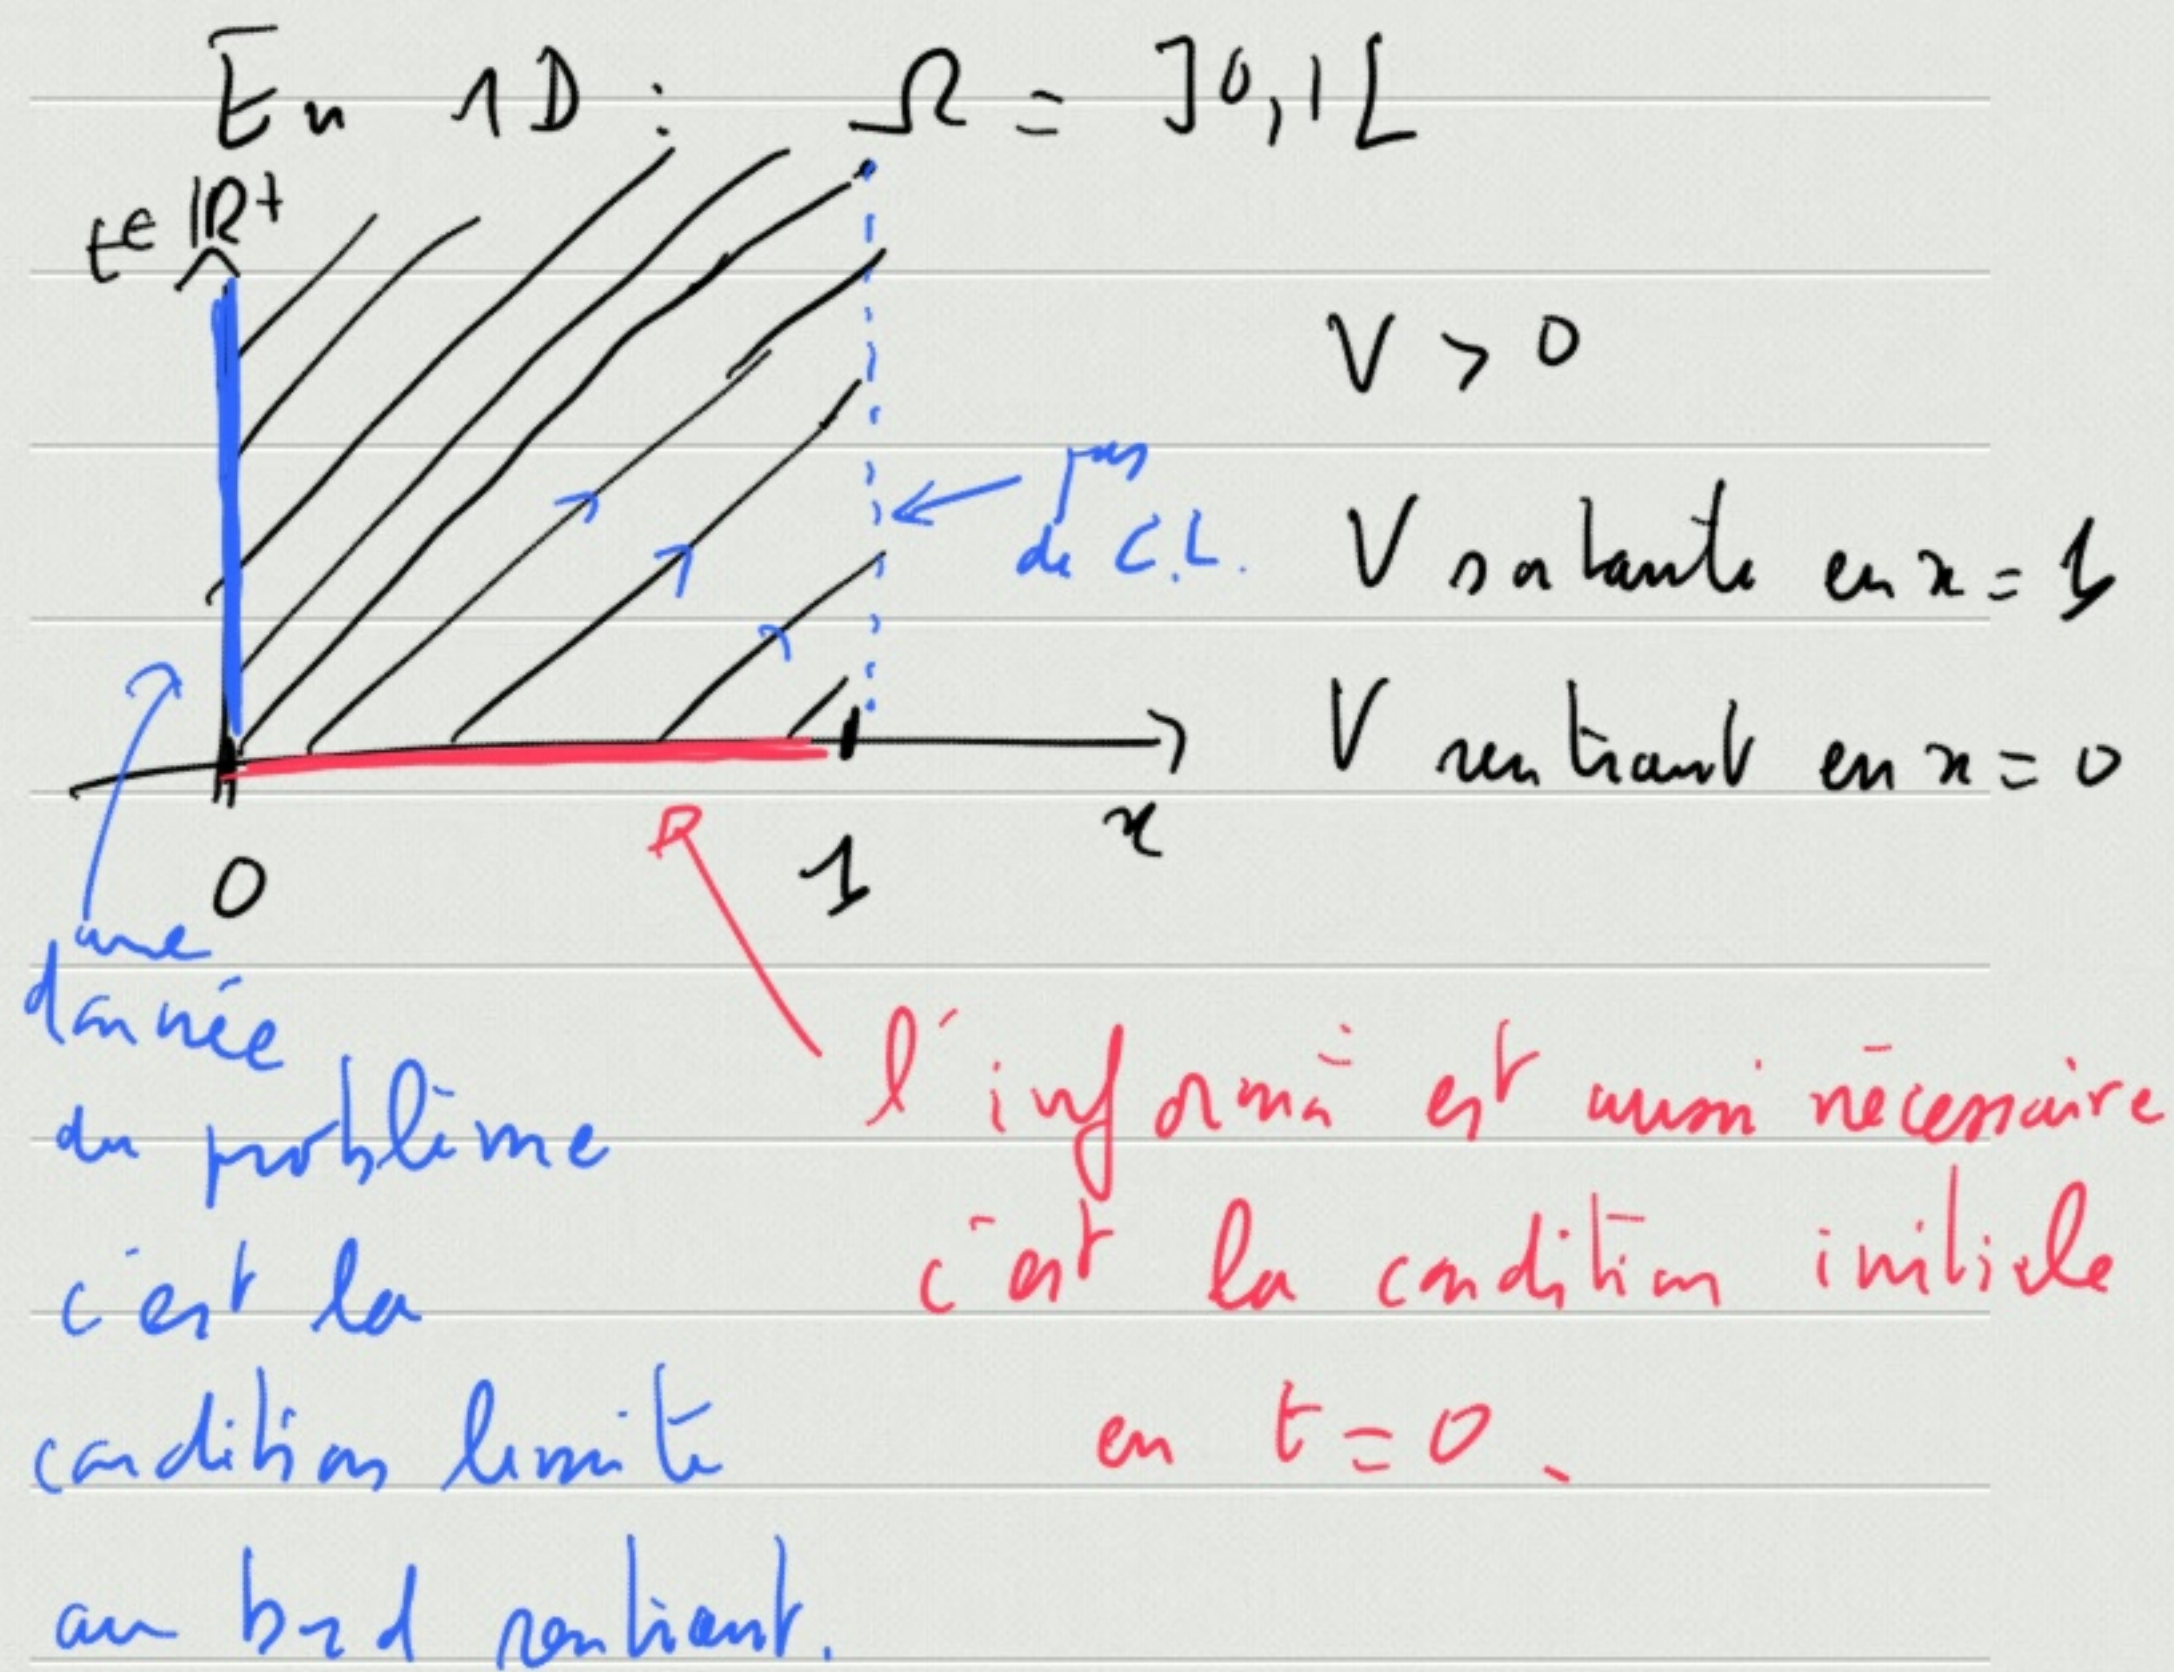 En 1D : Ω = ]0,1[
t∈ ℝ+
V > 0
pas
de C.L.
V sortante en x = 1
V rentrant en x = 0
x
0
1
une
donnée
du problème
c'est la
condition limite
au bord rentrant.
l'informa° est aussi nécessaire
c'est la condition initiale
en t = 0.